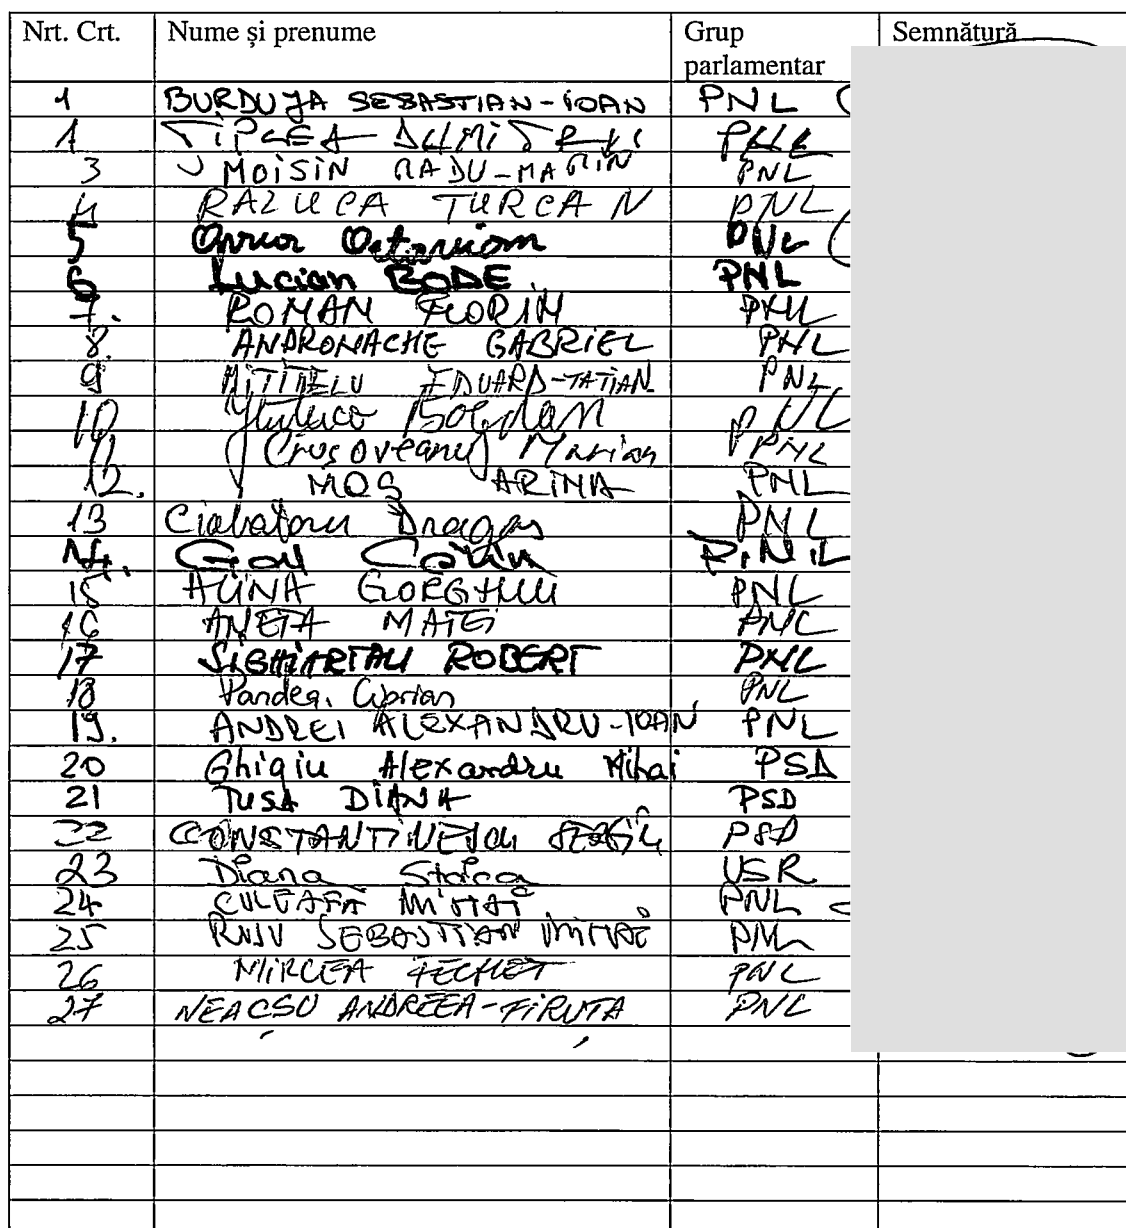 Nrt. Crt. Nume și prenume Grup parlamentar Semnătură
1 BURDUJA SEBASTIAN-IOAN PNL
ȚÎPLEA DUMITRU PNL
3 MOISIN RADU-MARIN PNL
4 RALUCA TURCAN PNL
5 Oprea Octavian PNL
6 Lucian BODE PNL
7. ROMAN FLORIN PNL
8. ANDRONACHE GABRIEL PNL
9 MITITELU EDUARD-TATIAN PNL
10 Bogdan PNL
11 Crușoveanu Marian PNL
12. MOȘ ARINA PNL
13 Dragoș PNL
14. PNL
15 ALINA GORGHIU PNL
16 ANETA MATEI PNL
17 SIGHIARTĂU ROBERT PNL
18 Pandea Ciprian PNL
19. ANDREI ALEXANDRU-IOAN PNL
20 Ghigiu Alexandru Mihai PSD
21 TUȘA DIANA PSD
22 CONSTANTINESCU SERGIU PSD
23 Diana Stoica USR
24 CULEAFĂ MIHAI PNL
25 RUSU SEBASTIAN MIHAI PNL
26 MIRCEA FECHET PNL
27 NEACȘU ANDREEA-FIRUȚA PNL